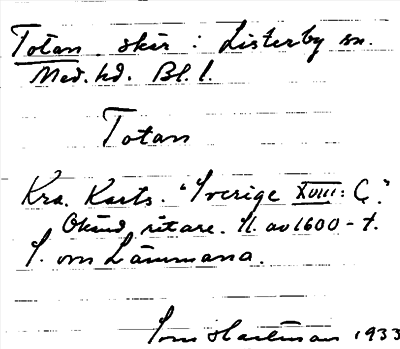 Totan skär : Listerby sn.
Med. hd. Bl. l.
Totan
Kra. Karts. "Sverige XVIII: C."
Okänd ritare. Sl. av 1600-t.
S. om Lammana.
Hartman 1933